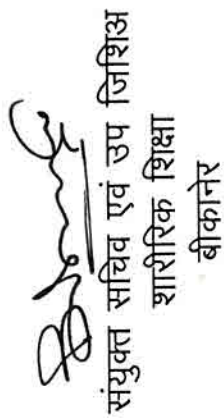 संयुक्त सचिव एवं उप जिशिअ
शारीरिक शिक्षा
बीकानेर